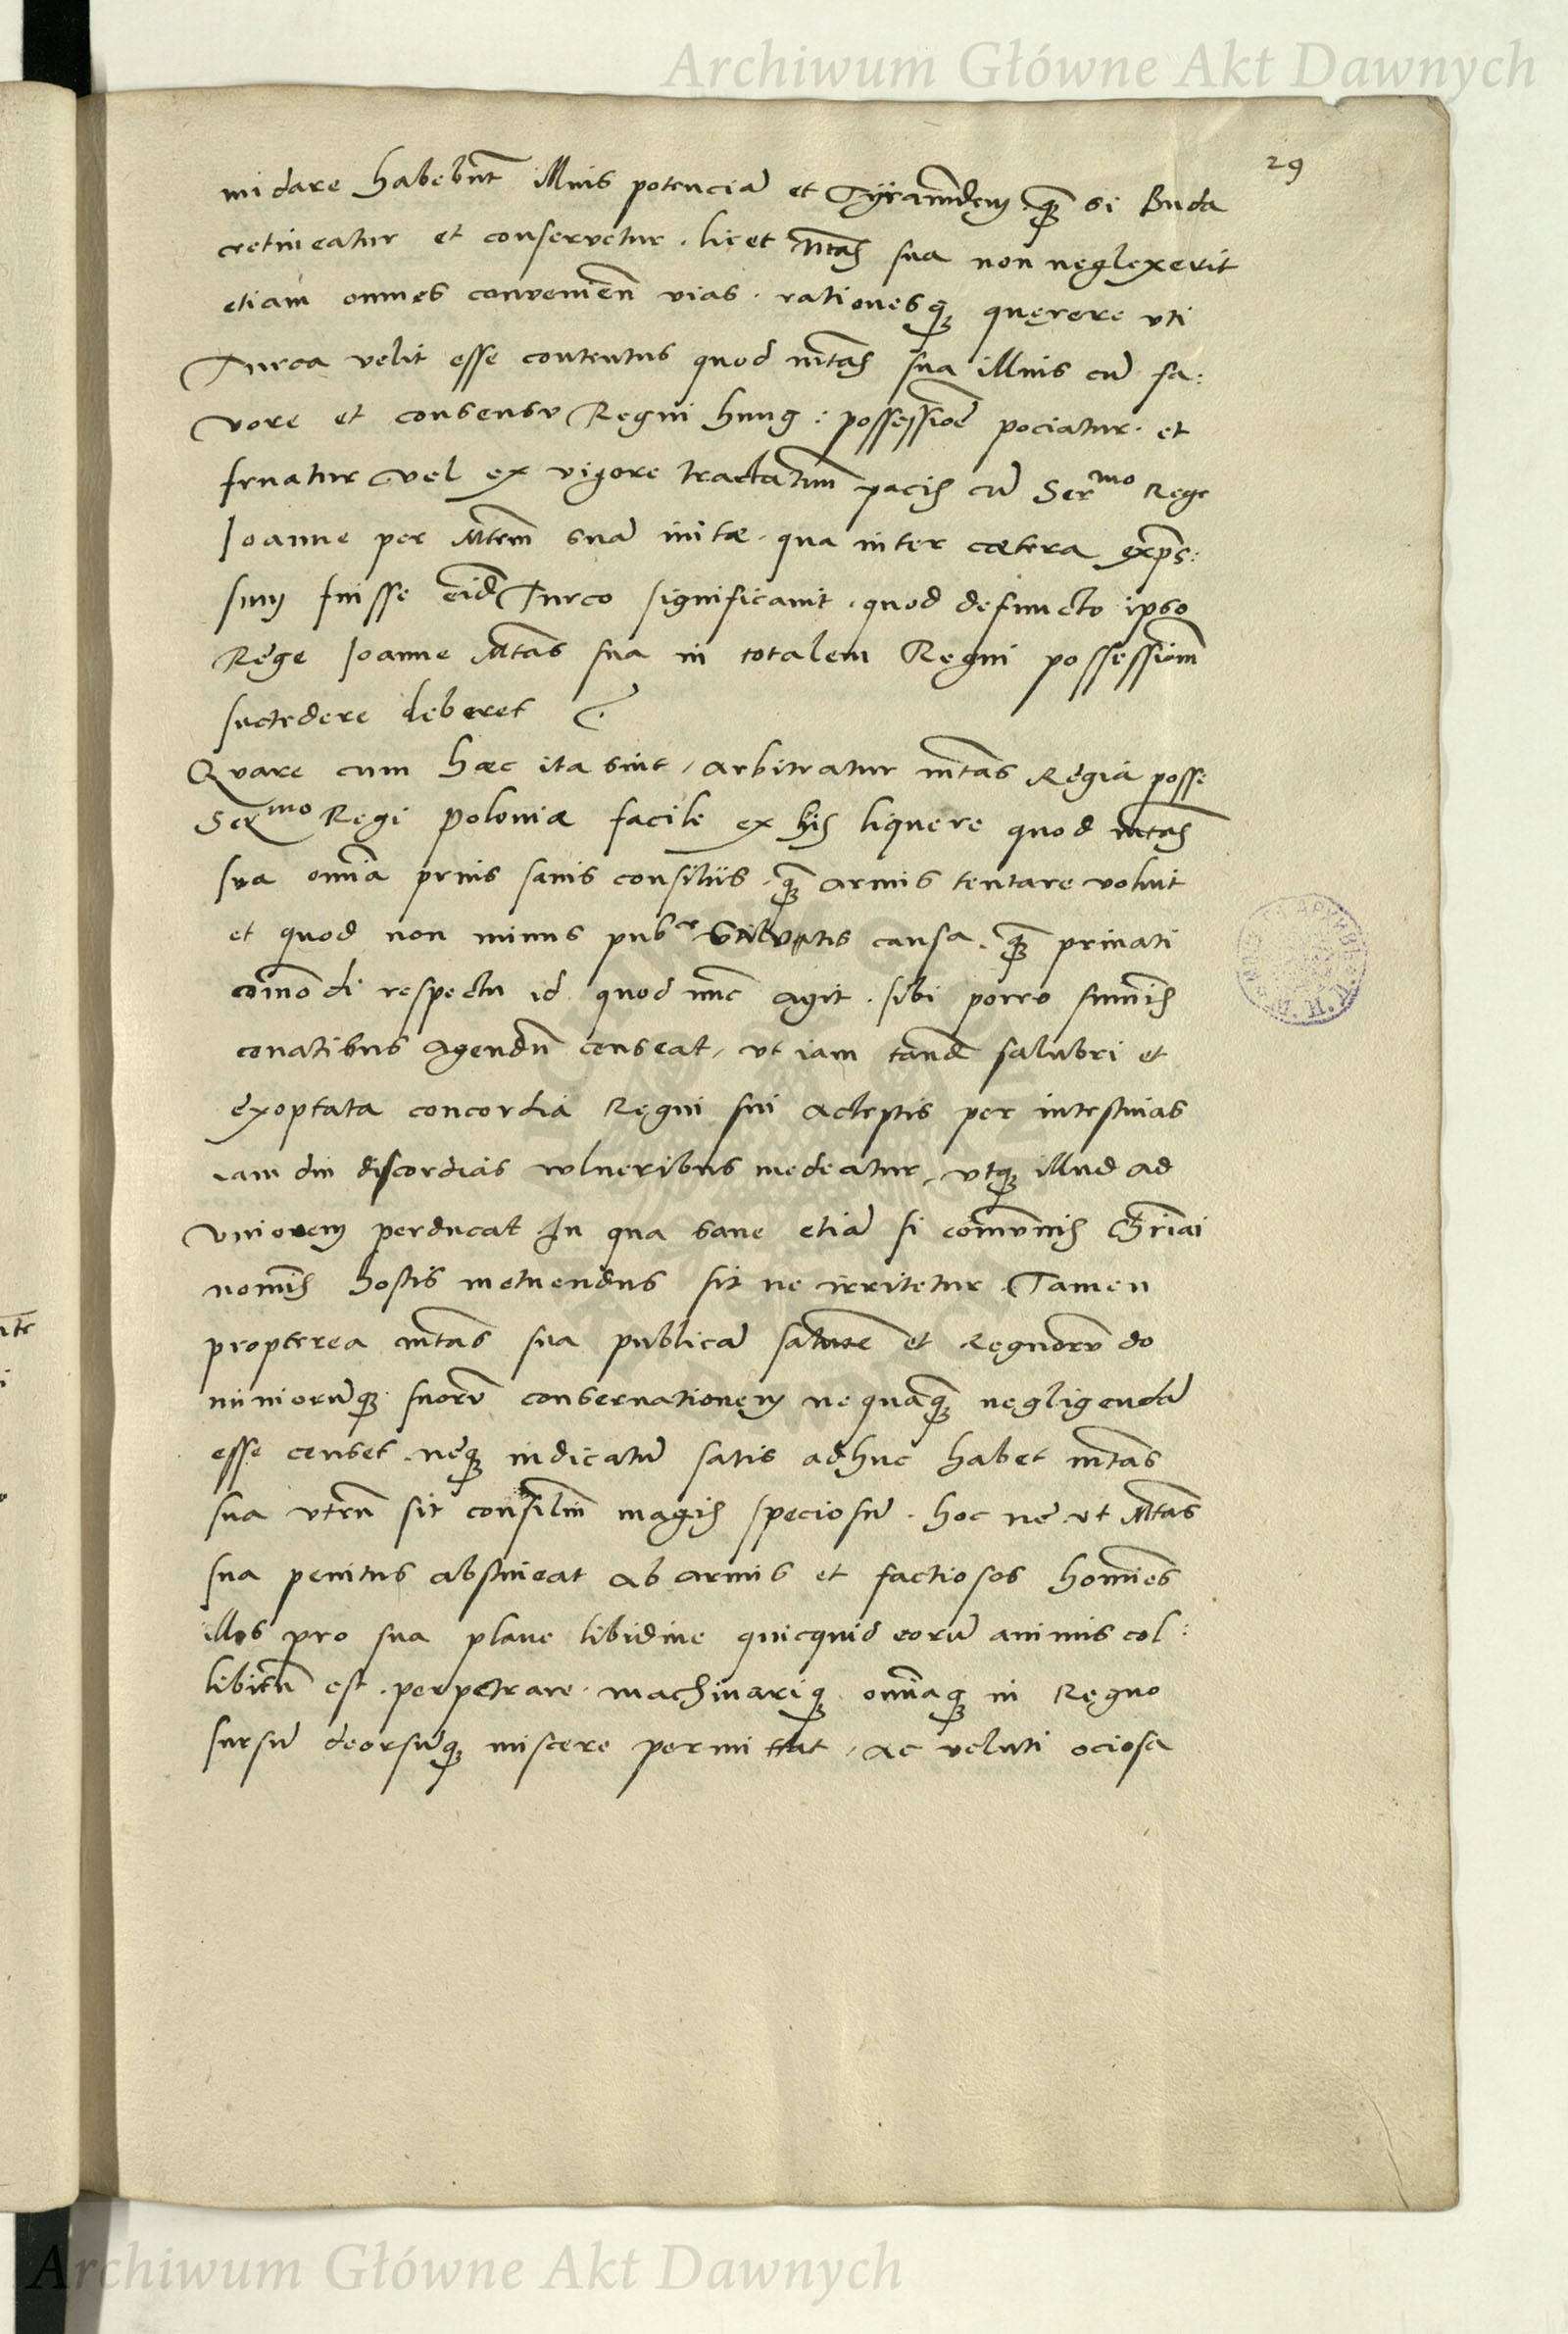 Archiwum Główne Akt Dawnych
29
midare habebũt illius potenciã et Tÿrannidem, quã si Buda
retineatur et conservetur. licet Mtas sua non neglexerit
etiam omnes convenien̄ vias. rationesq̃ quęrere vti
Turca velit esse contentus quod mtas sua illius cũ fa:
vore et consensv Regni hung: possessioē pociatur. et
fruatur vel ex vigore tractatuũ pacis cũ Sermo Rege
Joanne per Mtem suã initæ. qua inter cætera exp̃s:
sum fuisse eid̃ Turco significauit. quod defuncto ipso
Rege Joanne Mtas sua in totalem Regni possessionẽ
succedere deberet
Qvare cum hæc ita sint, arbitratur mtas Regia posse
Sermo Regi poloniæ facile ex his liquere quod mtas
sva om̃ia prius sanis consiliis. quã armis tentare voluit
et quod non minus pubce vtilitatis causa. quã priuati
com̃odi respectu id quod nũc agit. sibi porro sum̃is
conatibus agendũ censeat, vt iam tand̃ salubri et
exoptata concordia Regni sui acceptis per intestinas
iam diu discordias vulneribus medeatur, vtq̃ illud ad
vnionem perducat In qua sane etiã si com̃vnis Chr̃iai
nomĩs hostis metuendus sit ne irritetur. Tamen
propterea mtas sua publicã salutẽ et Regnorũ do
miniorũq̃ suorũ conseruationem nequaq̃ negligendã
esse censet. neq̃ indicatũ satis adhuc habet mtas
sua vtrũ sit consiliũ magis speciosũ. hoc ne vt Mtas
sua penitus abstineat ab armis et factiosos hom̃ies
illos pro sua plane libidine quicquid eorũ animis col:
libitũ est. perpetrare. machinariq̃ om̃iaq̃ in Regno
sursũ deorsũq̃ miscere permittat, ac veluti ociosa
Archiwum Główne Akt Dawnych